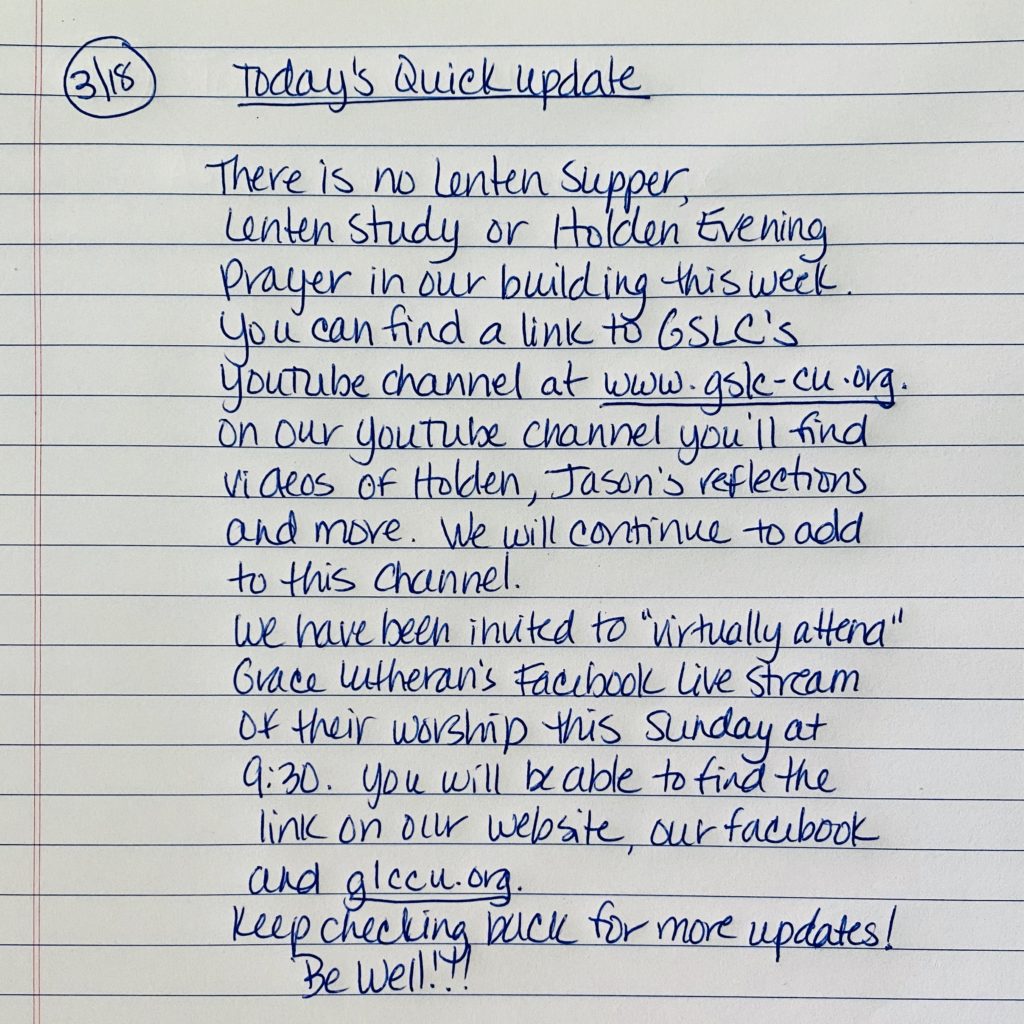 3/18 Today's Quick update
There is no Lenten Supper,
Lenten study or Holden Evening
Prayer in our building this week.
You can find a link to GSLC's
Youtube channel at www.gslc-cu.org.
On our youtube channel you'll find
videos of Holden, Jason's reflections
and more. We will continue to add
to this channel.
We have been invited to "virtually attend"
Grace Lutheran's Facebook Live Stream
of their worship this Sunday at
9:30. You will be able to find the
link on our website, our facebook
and glccu.org.
Keep checking back for more updates!
Be Well!!!